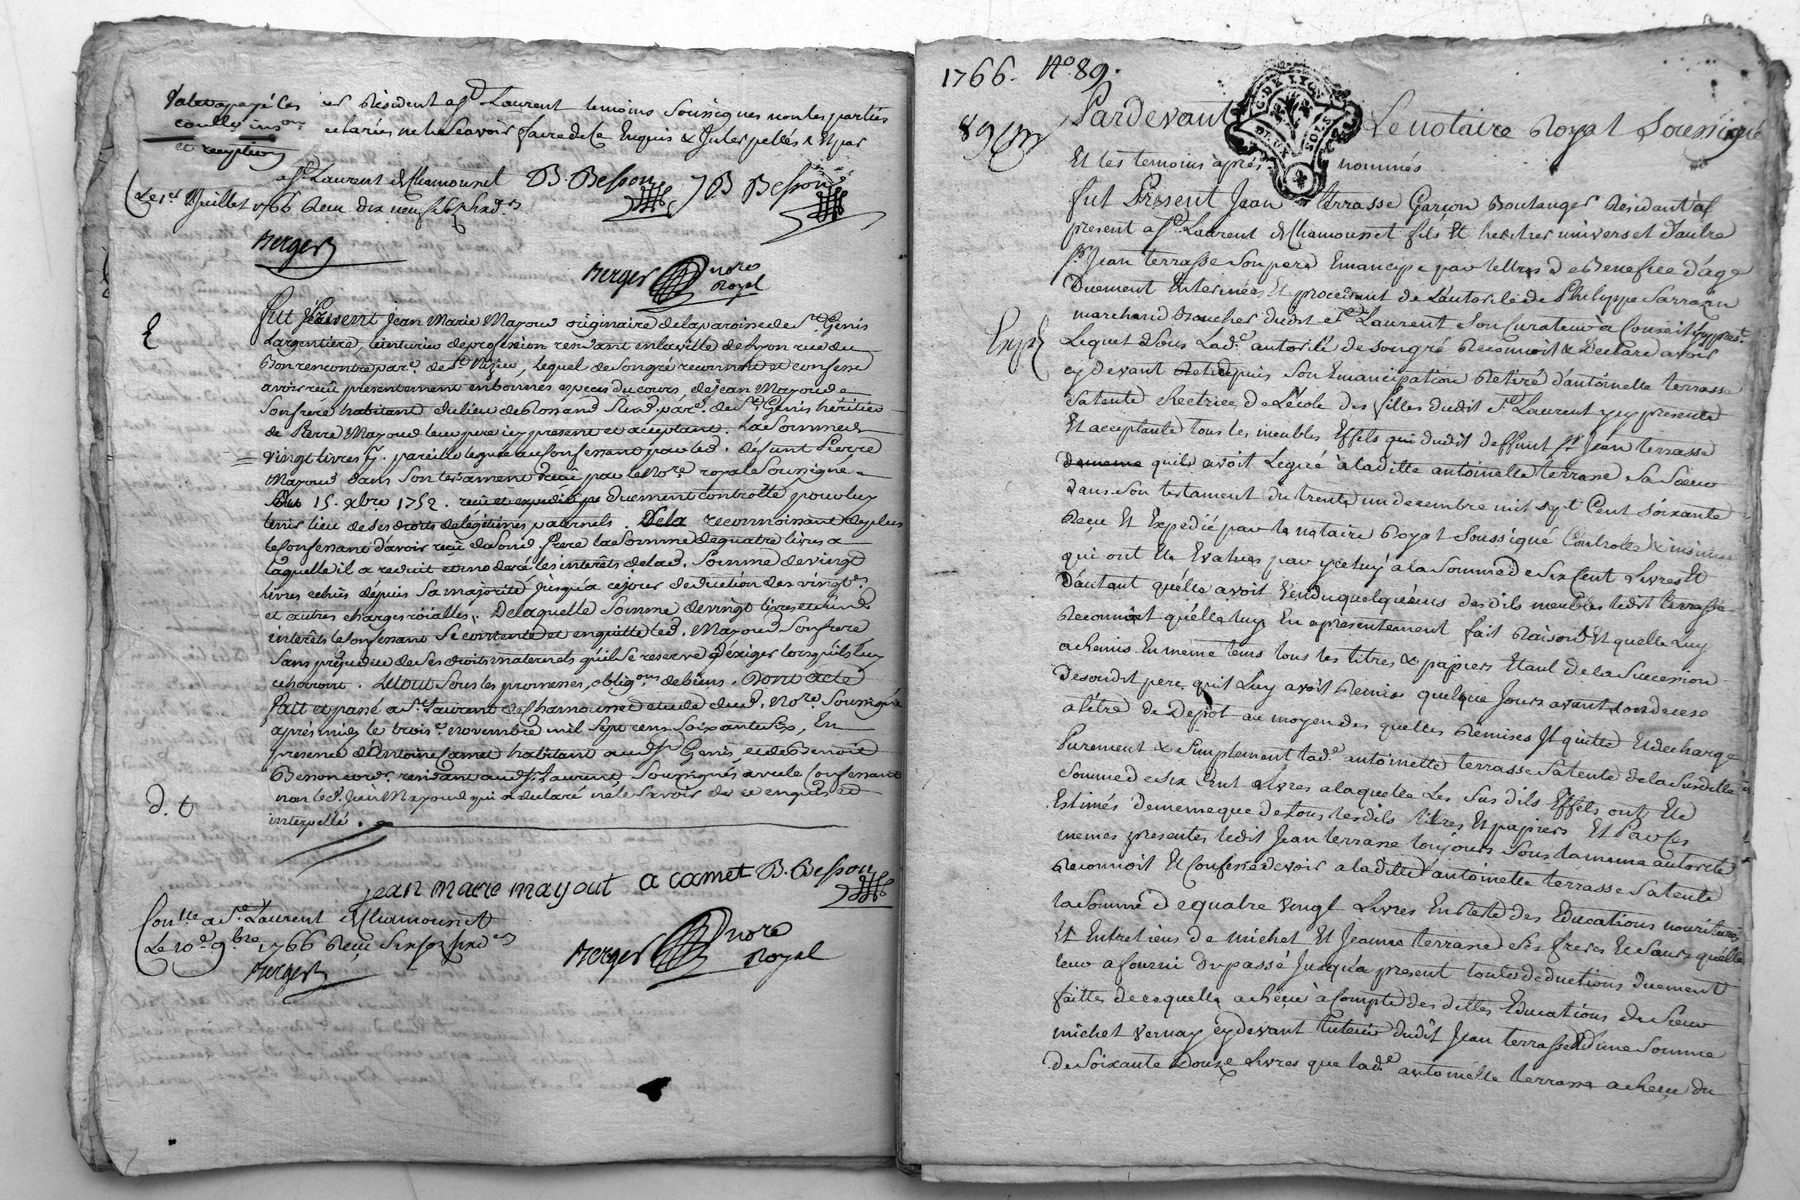 et résident a St Laurent temoins Soussignes non les parties
ectaries ne le Scavoir faire de ce Enquis & Interpellés & Par
et reception
St Laurent de Chamousset B Besson JB Besson
Le 1er Juillet 1766 Recu dix neuf sols six drs
Berger
Berger nore
Royal
fut Present Jean Marie Mayoud originaire de la paroisse de St Genis
Largentiere, teinturier de profession residant en la ville de Lyon rue du
Bonrencontre parse de St Nizier, Lequel de Son gré reconnoit et confesse
avoir reçû présentement en bonnes especes du cours, de jean Mayoud
Son frère habitant du lieu de Rossand Susd. parse de St Genis héritier
de Pierre Mayoud leur pere icy present et acceptant. La Somme de
vingt livres pareille leguée au Confessant par led. défunt Pierre
Mayoud dans Son testament reçû par le Nore royal Soussigné
Le 15 xbre 1752. duement controllé pour luy
tenir lieu de Ses droits de légitimes paternels. Dela reconnoissant deplus
le Confessant d'avoir reçû de Sond. frere la Somme de quatre livres a
laquelle il a reduit et modéré les intérêts de lad. Somme de vingt
livres echûs depuis Sa majorité jusqu'a ce jour deduction des vingts
et autres charges roialles. De laquelle Somme de vingt livres et desd.
interêts le Confessant Se contente et en quitte led. Mayoud Son frere
Sans préjudice de Ses droits maternels qu'il Se reserve d'éxiger lorsqu'ils luy
echoiront. Le tout Sous les promesses, obligons de biens. Dont acte
fait et passé a St Laurent de Chamousset etude dud. Nore Soussigné
après midy le troise novembre mil Sept cens Soixante Six, En
presence d'Antoine Camet habitant aud. St Genis, et de Benoit
Besson cordr. residant aud. St Laurent, Soussignés avec le Confessant
non led. Jean Mayoud qui a declaré ne le Scavoir de ce enquis et
interpellé.
jean marie mayout a camet B. Besson
Conlle a St Laurent de Chamousset
Le 10e 9bre 1766 Reçu Six sols six drs
Berger
Berger nore
Royal
1766. No 89.
G. DE LYON
DEUX SOLS
Pardevant Le notaire Royal Soussigné
Et les temoins après nommés
fut Présent Jean terrasse Garçon Boulanger résidant a
present a St Laurent de Chamousset fils Et heritier universel d'autre
Sr Jean terrasse Son pere Emancipé par lettres de Benefice d'age
Duement Enterinées Et procedant de L'autorité de Philippe Sarrazin
marchand Boucher dudit St Laurent Son Curateur a Conseil
Lequel Sous Lade autorité de Son gré Reconnoit & Declare avoir
cy devant et depuis Son Emancipation Retiré d'antoinette terrasse
Sa tente Rectrice de L'école des filles dudit St Laurent y cy presente
Et acceptante tous les meubles Effets qui dudit deffunt Sr Jean terrasse
qu'ils avoit Legué à la ditte antoinette terrasse Sa Sœur
dans Son testament du trente un decembre mil sept Cent Soixante
Reçu Et Expedié par le notaire Royal Soussigné Controllé & insinué
qui ont été Evalués par yceluy à la Somme de Six Cent Livres Et
D'autant qu'elle avoit Vendu quelqu'uns desdits meubles ledit terrasse
Reconnoit qu'elle luy En a presentement fait Raison Et quelle Luy
a Remis En meme tems tous les titres & papiers Etant de la Succession
De Sondit pere, qu'il Luy avoit Remis quelque Jours avant Son deces
a titre de Dépot au moyen des quelles Remises Il quitte Et decharge
Purement & Simplement lade antoinette terrasse Sa tente de la Susditte
Somme de Six Cent Livres a laquelle Les Sus dits Effets ont Eté
Estimés de meme que de tous lesdits titres Et papiers Et Par les
memes presentes ledit Jean terrasse toujours Sous la meme autorité
Reconnoit Et Confesse devoir a la ditte antoinette terrasse Sa tente
la Somme de quatre vingt Livres En Reste des Educations nouritures
Et Entretiens de michel Et Jeanne terrasse Ses freres Et Sœurs qu'elle
leur a fourni du passé Jusqu'a present toutes deductions duement
faittes de ce quelle a Reçu à Compte des dittes Educations de Sieur
michel Vernay cy devant tuteur dudit Jean terrasse d'une Somme
de Soixante Douze Livres que lade antoinette terrasse a Reçu du